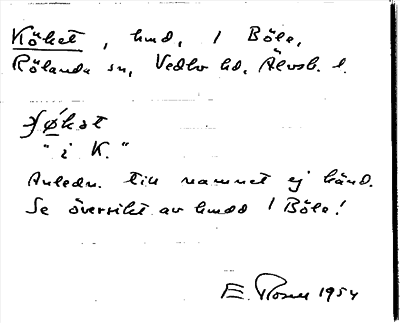 Köket, hmd, 1 Böle,
Rölanda sn, Vedbo hd, Älvsb. l.
"i K."
Anledn. till namnet ej känd.
Se översikt av hmdd 1 Böle!
E. Rosell 1954